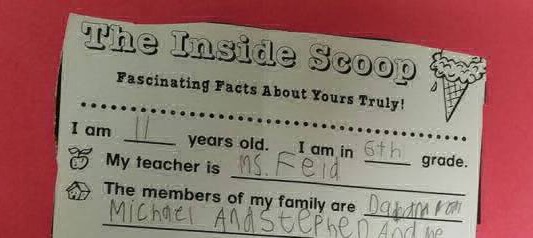 The Inside Scoop
Fascinating Facts About Yours Truly!
I am 11 years old. I am in 6th grade.
My teacher is ms. Feid
The members of my family are
Michael And Stephen And me